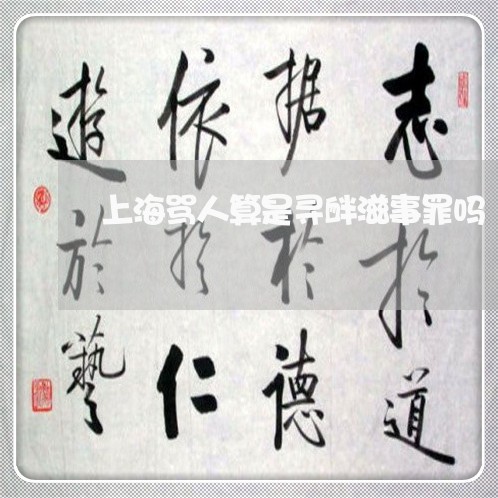 志於道
据於德
依於仁
遊於藝
上海骂人算是寻衅滋事罪吗